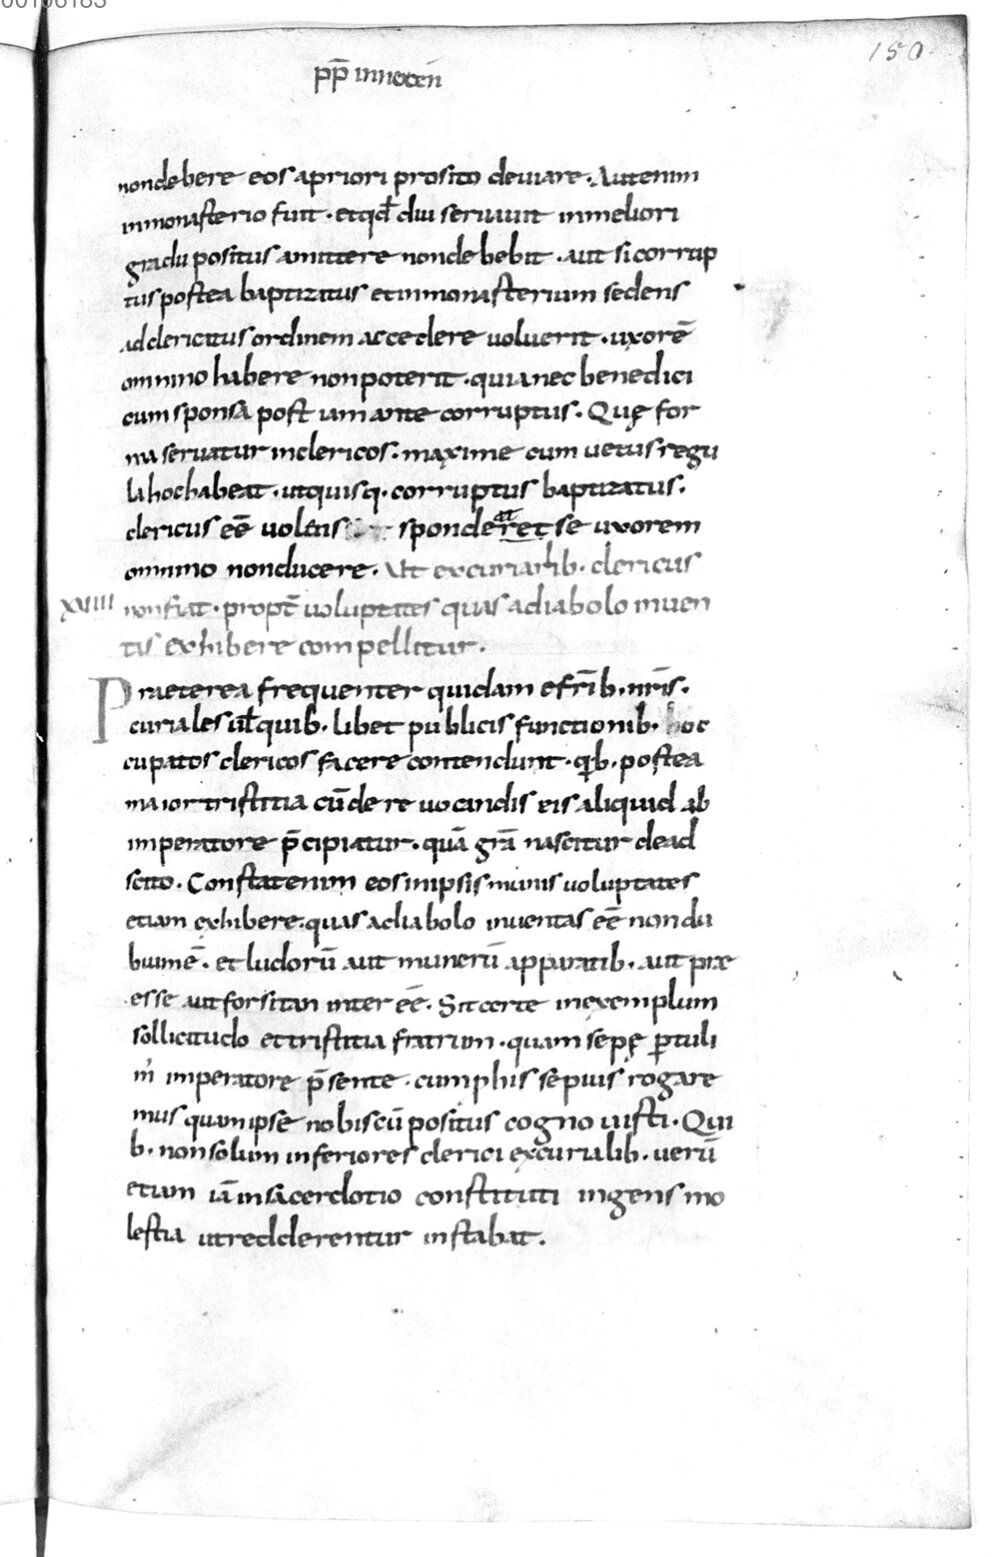 00106183
150
pp̄ innocen̄
non debere eos apriori prosito deuiare. Aut enim
inmonasterio fuit. et qđ diu seruauit inmeliori
gradu positus amittere non debebit. aut si corrup
tus postea baptizatus et inmonasterium sedens
ad clericatus ordinem accedere uoluerit. uxorē
omnino habere non poterit. quia nec benedici
cum sponsa post iam ante corruptus. Quę for
ma seruatur inclericos. maxime cum uetus regu
la hoc habeat. ut quisq. corruptus baptizatus.
clericus eē uolens sponderet se uxorem
omnino non ducere. Ut ex curialib. clericus
XVIIII non fiat. propt̄ uoluptates quas adiabolo inuen
tas exhibere compellitur.
Praeterea frequenter quidam efr̄ib. nr̄is.
curiales ul̄ quib. libet publicis functionib. hoc
cupatos clericos facere contendunt. qib. postea
maior tristitia cū de reuocandis eis aliquid ab
imperatore p̄cipiatur. quā grā nascitur de ad
scito. Constat enim eos inipsis muniis uoluptates
etiam exhibere. quas adiabolo inuentas eē non du
biumē. et ludorū aut munerū apparatib. aut prae
esse aut forsitan inter eē. Sit certe inexemplum
sollicitudo et tristitia fratrum. quam sepę ꝑtuli
m̄ imperatore p̄sente. cum ꝓ his sepius rogare
mus quam ipse nobiscū positus cognouisti. Qui
b. non solum inferiores clerici ex curialib. uerū
etiam iā insacerdotio constituti ingens mo
lestia ut redderentur instabat.